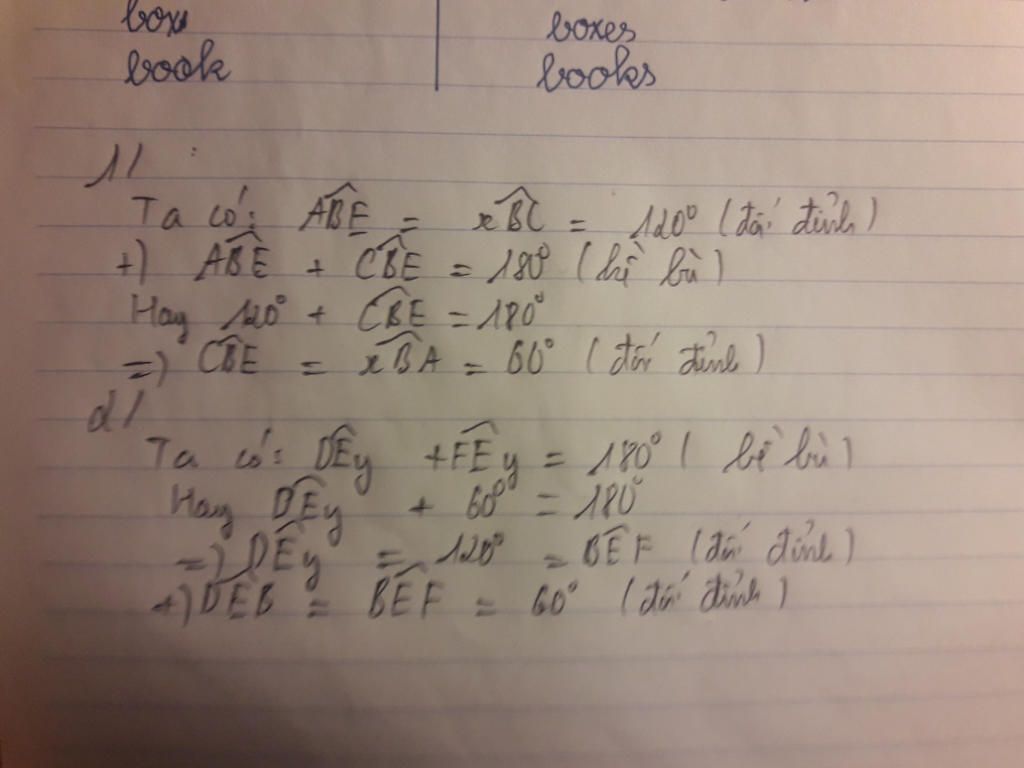 box boxes
book books
1/
Ta có: ABE = xBC = 120° (đối đỉnh)
+) ABE + CBE = 180° (kề bù)
Hay 120° + CBE = 180°
=) CBE = xBA = 60° (đối đỉnh)
d/
Ta có: DEy + FEy = 180° ( kề bù)
Hay DEy + 60° = 180°
=) DEy = 120° = BEF (đối đỉnh)
+) DEB = BEF = 60° (đối đỉnh)